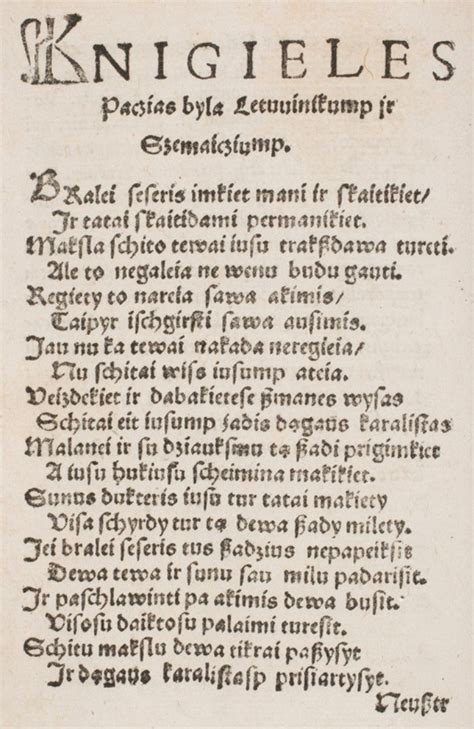 KNIGIELES
Paczias byla Letuvinikump ir
Szemaicziump.
BRalei seseris imkiet mani ir skaitikiet/
Ir tatai skaitidami permanikiet.
Maksla schito tewai iusu trakßdawa tureti.
Ale to negaleia ne wenu budu gauti.
Regiety to nareia sawa akimis/
Taipyr ischgirsti sawa ausimis.
Jau nu ka tewai nakada neregieia/
Nu schitai wiss iusump ateia.
Veizdekiet ir dabakietese ßmanes wysas
Schitai eit iusump ßadis dągaus karalistas
Malanei ir su dziauksmu tą ßadi prigimkiet
A iusu hukiusu scheimina makikiet.
Sunus dukteris iusu tur tatai makiety
Visa schyrdy tur tą dewa ßady milety.
Jei bralei seseris tus ßadzius nepapeiksit
Dewa tewa ir sunu sau milu padarisit.
Ir paschlawinti pa akimis dewa busit.
Visosu daiktosu palaimi turesit.
Schitu makslu dewa tikrai paßysyt
Ir dągaus karalistasp prisiartysyt.
Neußtr